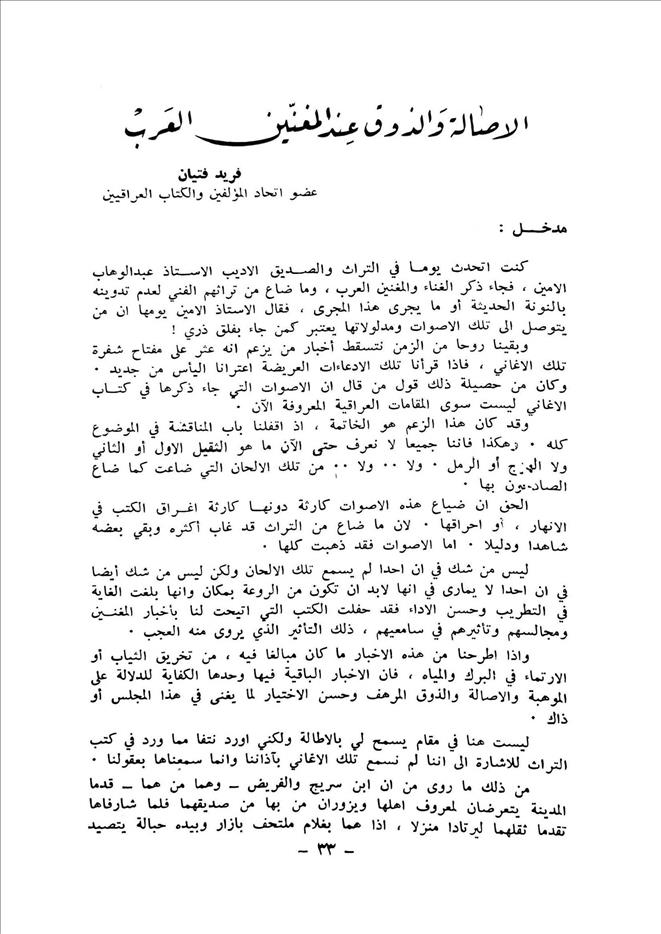 الاصالة والذوق عند المغنين العرب
فريد فتيان
عضو اتحاد المؤلفين والكتاب العراقيين
مدخـــل :
كنت اتحدث يومـا في التراث والصـديق الاديب الاسـتاذ عبدالوهاب
الامين ، فجاء ذكر الغناء والمغنين العرب ، وما ضاع من تراثهم الفني لعدم تدوينه
بالنوتة الحديثة أو ما يجرى هذا المجرى ، فقال الاستاذ الامين يومها ان من
يتوصل الى تلك الاصوات ومدلولاتها يعتبر كمن جاء بفلق ذري !
وبقينا روحا من الزمن نتسقط أخبار من يزعم انه عثر على مفتاح شفرة
تلك الاغاني ، فاذا قرأنا تلك الادعاءات العريضة اعترانا اليأس من جديد ٠
وكان من حصيلة ذلك قول من قال ان الاصوات التي جاء ذكرها في كتـاب
الاغاني ليست سوى المقامات العراقية المعروفة الآن ٠
وقد كان هذا الزعم هو الخاتمة ، اذ اقفلنا باب المناقشة في الموضوع
كله ٠ وهكذا فاننا جميعا لا نعرف حتى الآن ما هو الثقيل الاول أو الثاني
ولا الهزج أو الرمل ٠ ولا ٠٠ ولا ٠٠ من تلك الالحان التي ضاعت كما ضاع
الصادحون بها ٠
الحق ان ضياع هذه الاصوات كارثة دونهـا كارثة اغـراق الكتب في
الانهار ، أو احراقها ٠ لان ما ضاع من التراث قد غاب أكثره وبقي بعضه
شاهدا ودليلا ٠ اما الاصوات فقد ذهبت كلها ٠
ليس من شك في ان احدا لم يسمع تلك الالحان ولكن ليس من شك أيضا
في ان احدا لا يمارى في انها لابد ان تكون من الروعة بمكان وانها بلغت الغاية
في التطريب وحسن الاداء فقد حفلت الكتب التي اتيحت لنا بأخبار المغنـين
ومجالسهم وتأثيرهم في سامعيهم ، ذلك التأثير الذي يروى منه العجب ٠
واذا اطرحنا من هذه الاخبار ما كان مبالغا فيه ، من تخريق الثياب أو
الارتماء في البرك والمياه ، فان الاخبار الباقية فيها وحدها الكفاية للدلالة على
الموهبة والاصالة والذوق المرهف وحسن الاختيار لما يغنى في هذا المجلس أو
ذاك ٠
ليست هنا في مقام يسمح لي بالاطالة ولكني اورد نتفا مما ورد في كتب
التراث للاشارة الى اننا لم نسمع تلك الاغاني بآذاننا وانما سمعناها بعقولنا ٠
من ذلك ما روى من ان ابن سريج والغريض ــ وهما من هما ــ قدما
المدينة يتعرضان لمعروف اهلها ويزوران من بها من صديقهما فلما شارفاها
تقدما ثقلهما ليرتادا منزلا ، اذا هما بغلام ملتحف بازار وبيده حبالة يتصيد
ــ ٣٣ ــ